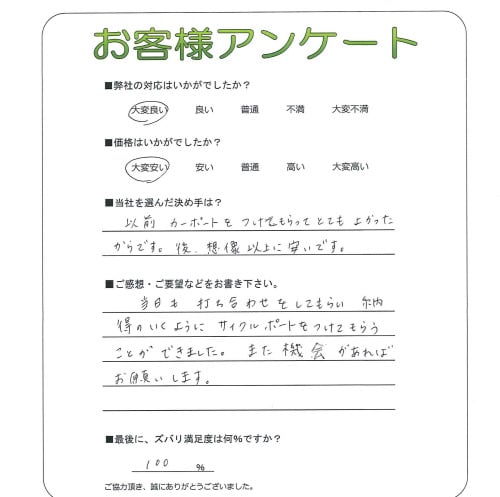 お客様アンケート
■弊社の対応はいかがでしたか？
大変良い 良い 普通 不満 大変不満
■価格はいかがでしたか？
大変安い 安い 普通 高い 大変高い
■当社を選んだ決め手は？
以前 カーポートを つけてもらってとても よかった
からです。後、想像以上に安いです。
■ご感想・ご要望などをお書き下さい。
当日も 打ち合わせをしてもらい 納
得のいくように サイクルポートをつけてもらう
ことが できました。また機会があれば
お願いします。
■最後に、ズバリ満足度は何%ですか？
100 %
ご協力頂き、誠にありがとうございました。